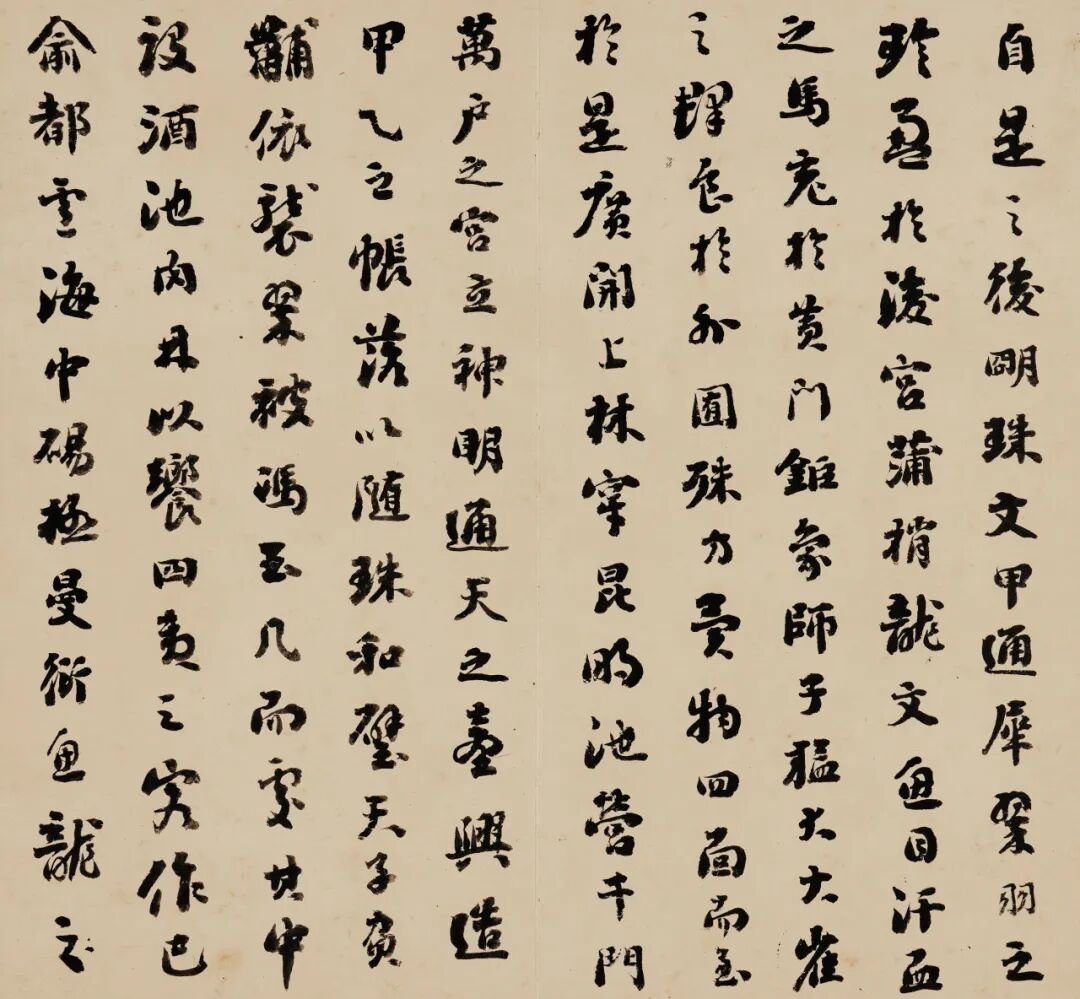 自是之後明珠文甲通犀翠羽之
珍盈於後宮蒲梢龍文魚目汗血
之馬充於黃門鉅象師子猛犬大雀
之群食於外囿殊方異物四面而至
於是廣開上林穿昆明池營千門
萬戶之宮立神明通天之臺興造
甲乙之帳落以隨珠和璧天子負
黼依襲翠被馮玉几而處其中
設酒池肉林以饗四夷之客作巴
俞都盧海中碭極曼衍魚龍之